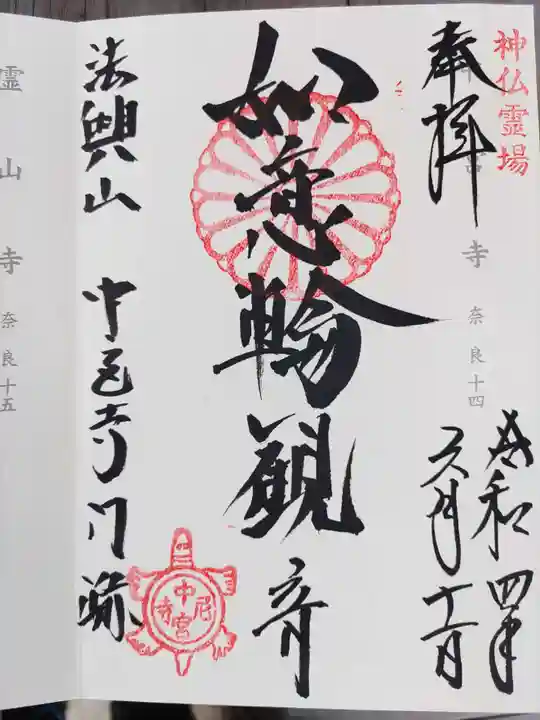 神仏霊場
奉拝
中宮寺 奈良十四
令和四年
六月十二日
如意輪観音
法興山 中宮寺門跡
中宮寺
霊山寺 奈良十五